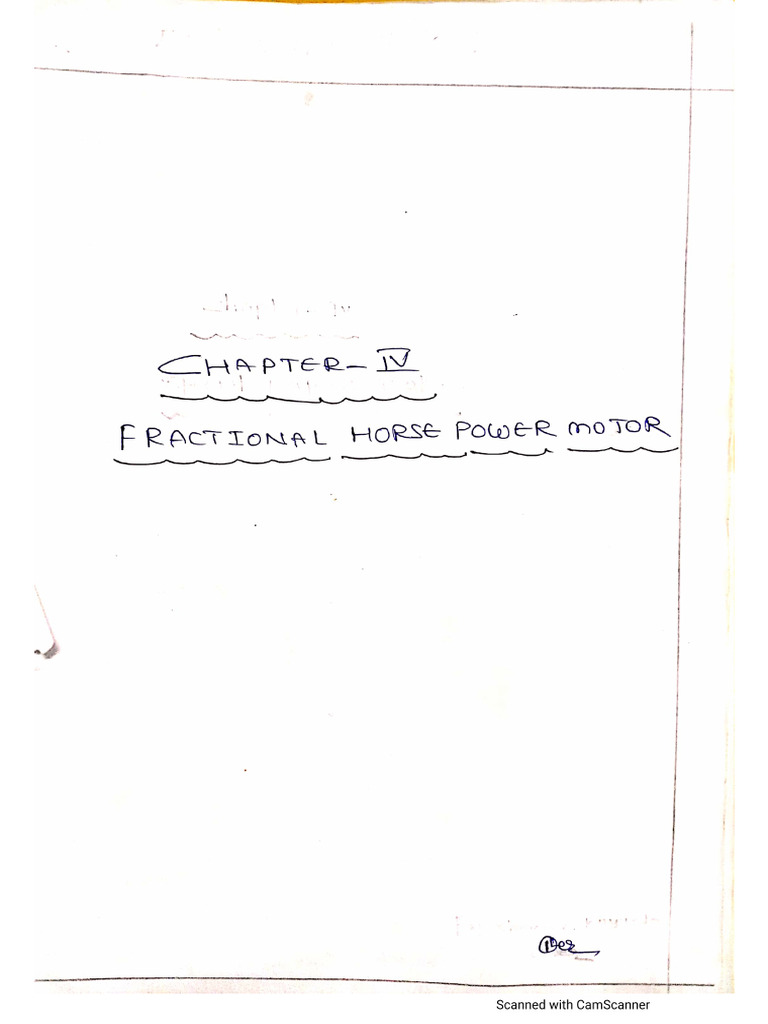 CHAPTER-IV
FRACTIONAL HORSE POWER MOTOR
Scanned with CamScanner